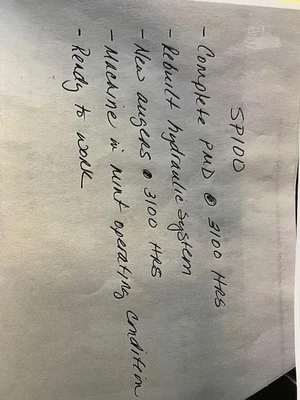 SP100
- Complete PMD @ 3100 HRS
- Rebuilt hydraulic System
- New augers @ 3100 HRS
- Machine in mint operating condition
- Ready to work